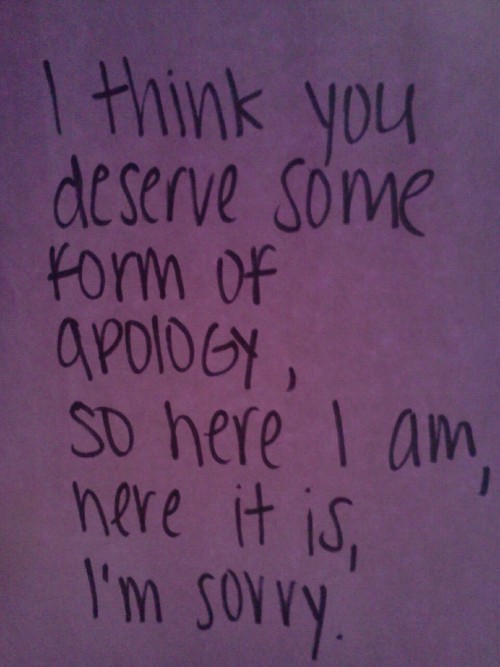 I think you
deserve some
form of
apology,
so here I am,
here it is,
I'm sorry.